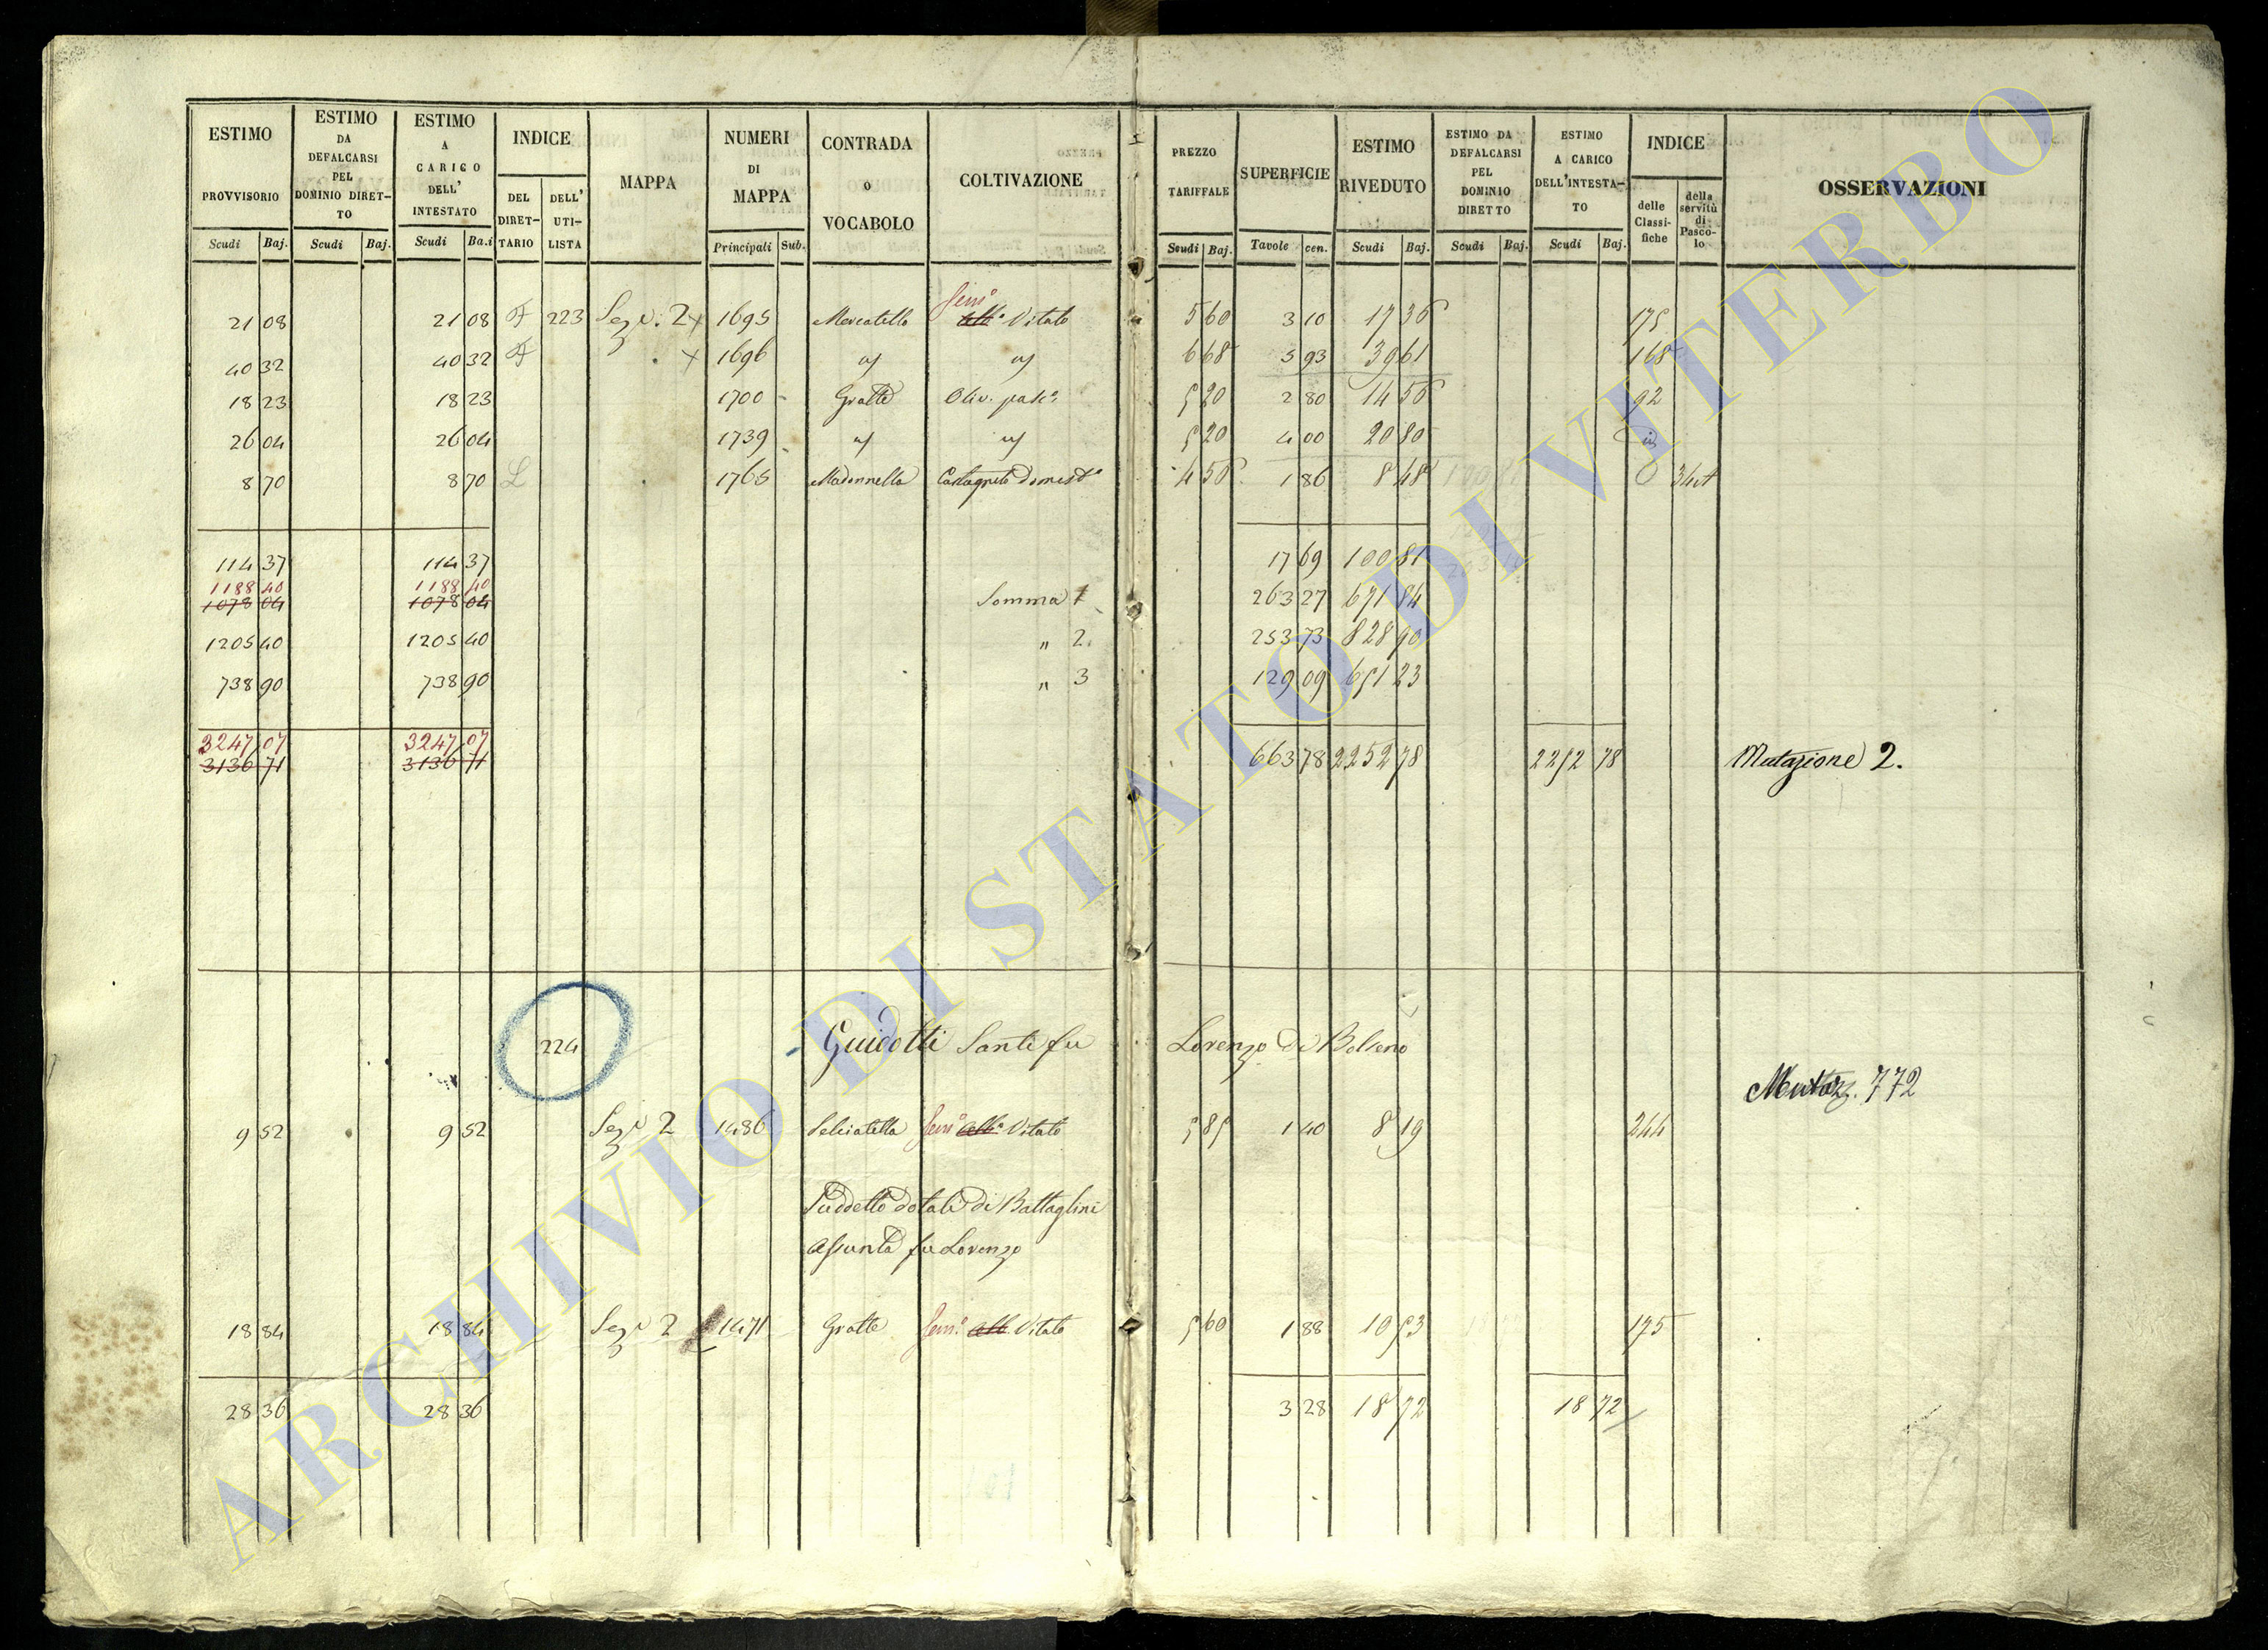 ESTIMO PROVVISORIO Scudi Baj.
ESTIMO DA DEFALCARSI PEL DOMINIO DIRET-TO Scudi Baj.
ESTIMO A CARICO DELL' INTESTATO Scudi Ba.i
INDICE DEL DIRET-TARIO DELL' UTI-LISTA
MAPPA
NUMERI DI MAPPA Principali Sub.
CONTRADA O VOCABOLO
COLTIVAZIONE
PREZZO TARIFFALE Scudi Baj.
SUPERFICIE Tavole cen.
ESTIMO RIVEDUTO Scudi Baj.
ESTIMO DA DEFALCARSI PEL DOMINIO DIRETTO Scudi Baj.
ESTIMO A CARICO DELL'INTESTA-TO Scudi Baj.
INDICE delle Classi-fiche della servitù di Pasco-lo
OSSERVAZIONI
21 08 21 08 223 Sez. 2 x 1695 Mercatello Sem.o Vitato 5 60 3 10 17 36 175
40 32 40 32 x 1696 5 93 39 61 168
18 23 18 23 1700 Grotte Oliv. pas.o 5 20 2 80 14 56 92
26 04 26 04 1739 5 20 4 00 20 80 id
8 70 8 70 L 1765 Madonnella Castagneto domest.o 4 56 1 86 8 48
114 37 114 37 17 69 100 81
1188 40 1188 40
1078 04 1078 04 Somma 1 263 27 671 84
1205 40 1205 40 " 2. 253 73 828 90
738 90 738 90 " 3 129 09 651 23
3247 07 3247 07
3136 71 3136 71 663 78 2252 78 2252 78 Mutazione 2.
224 Guidotti Santi fu Lorenzo di Bolseno
Mutaz. 772
9 52 9 52 Sez. 2 1486 Selciatella Sem.o Alb.o Vitato 5 85 1 40 8 19 244
Suddetto dotali di Battaglini
Assunta fu Lorenzo
18 84 18 84 Sez. 2 1471 Grotte Sem.o Alb. Vitato 5 60 1 88 10 53 175
28 36 28 36 3 28 18 72 18 72
ARCHIVIO DI STATO DI VITERBO